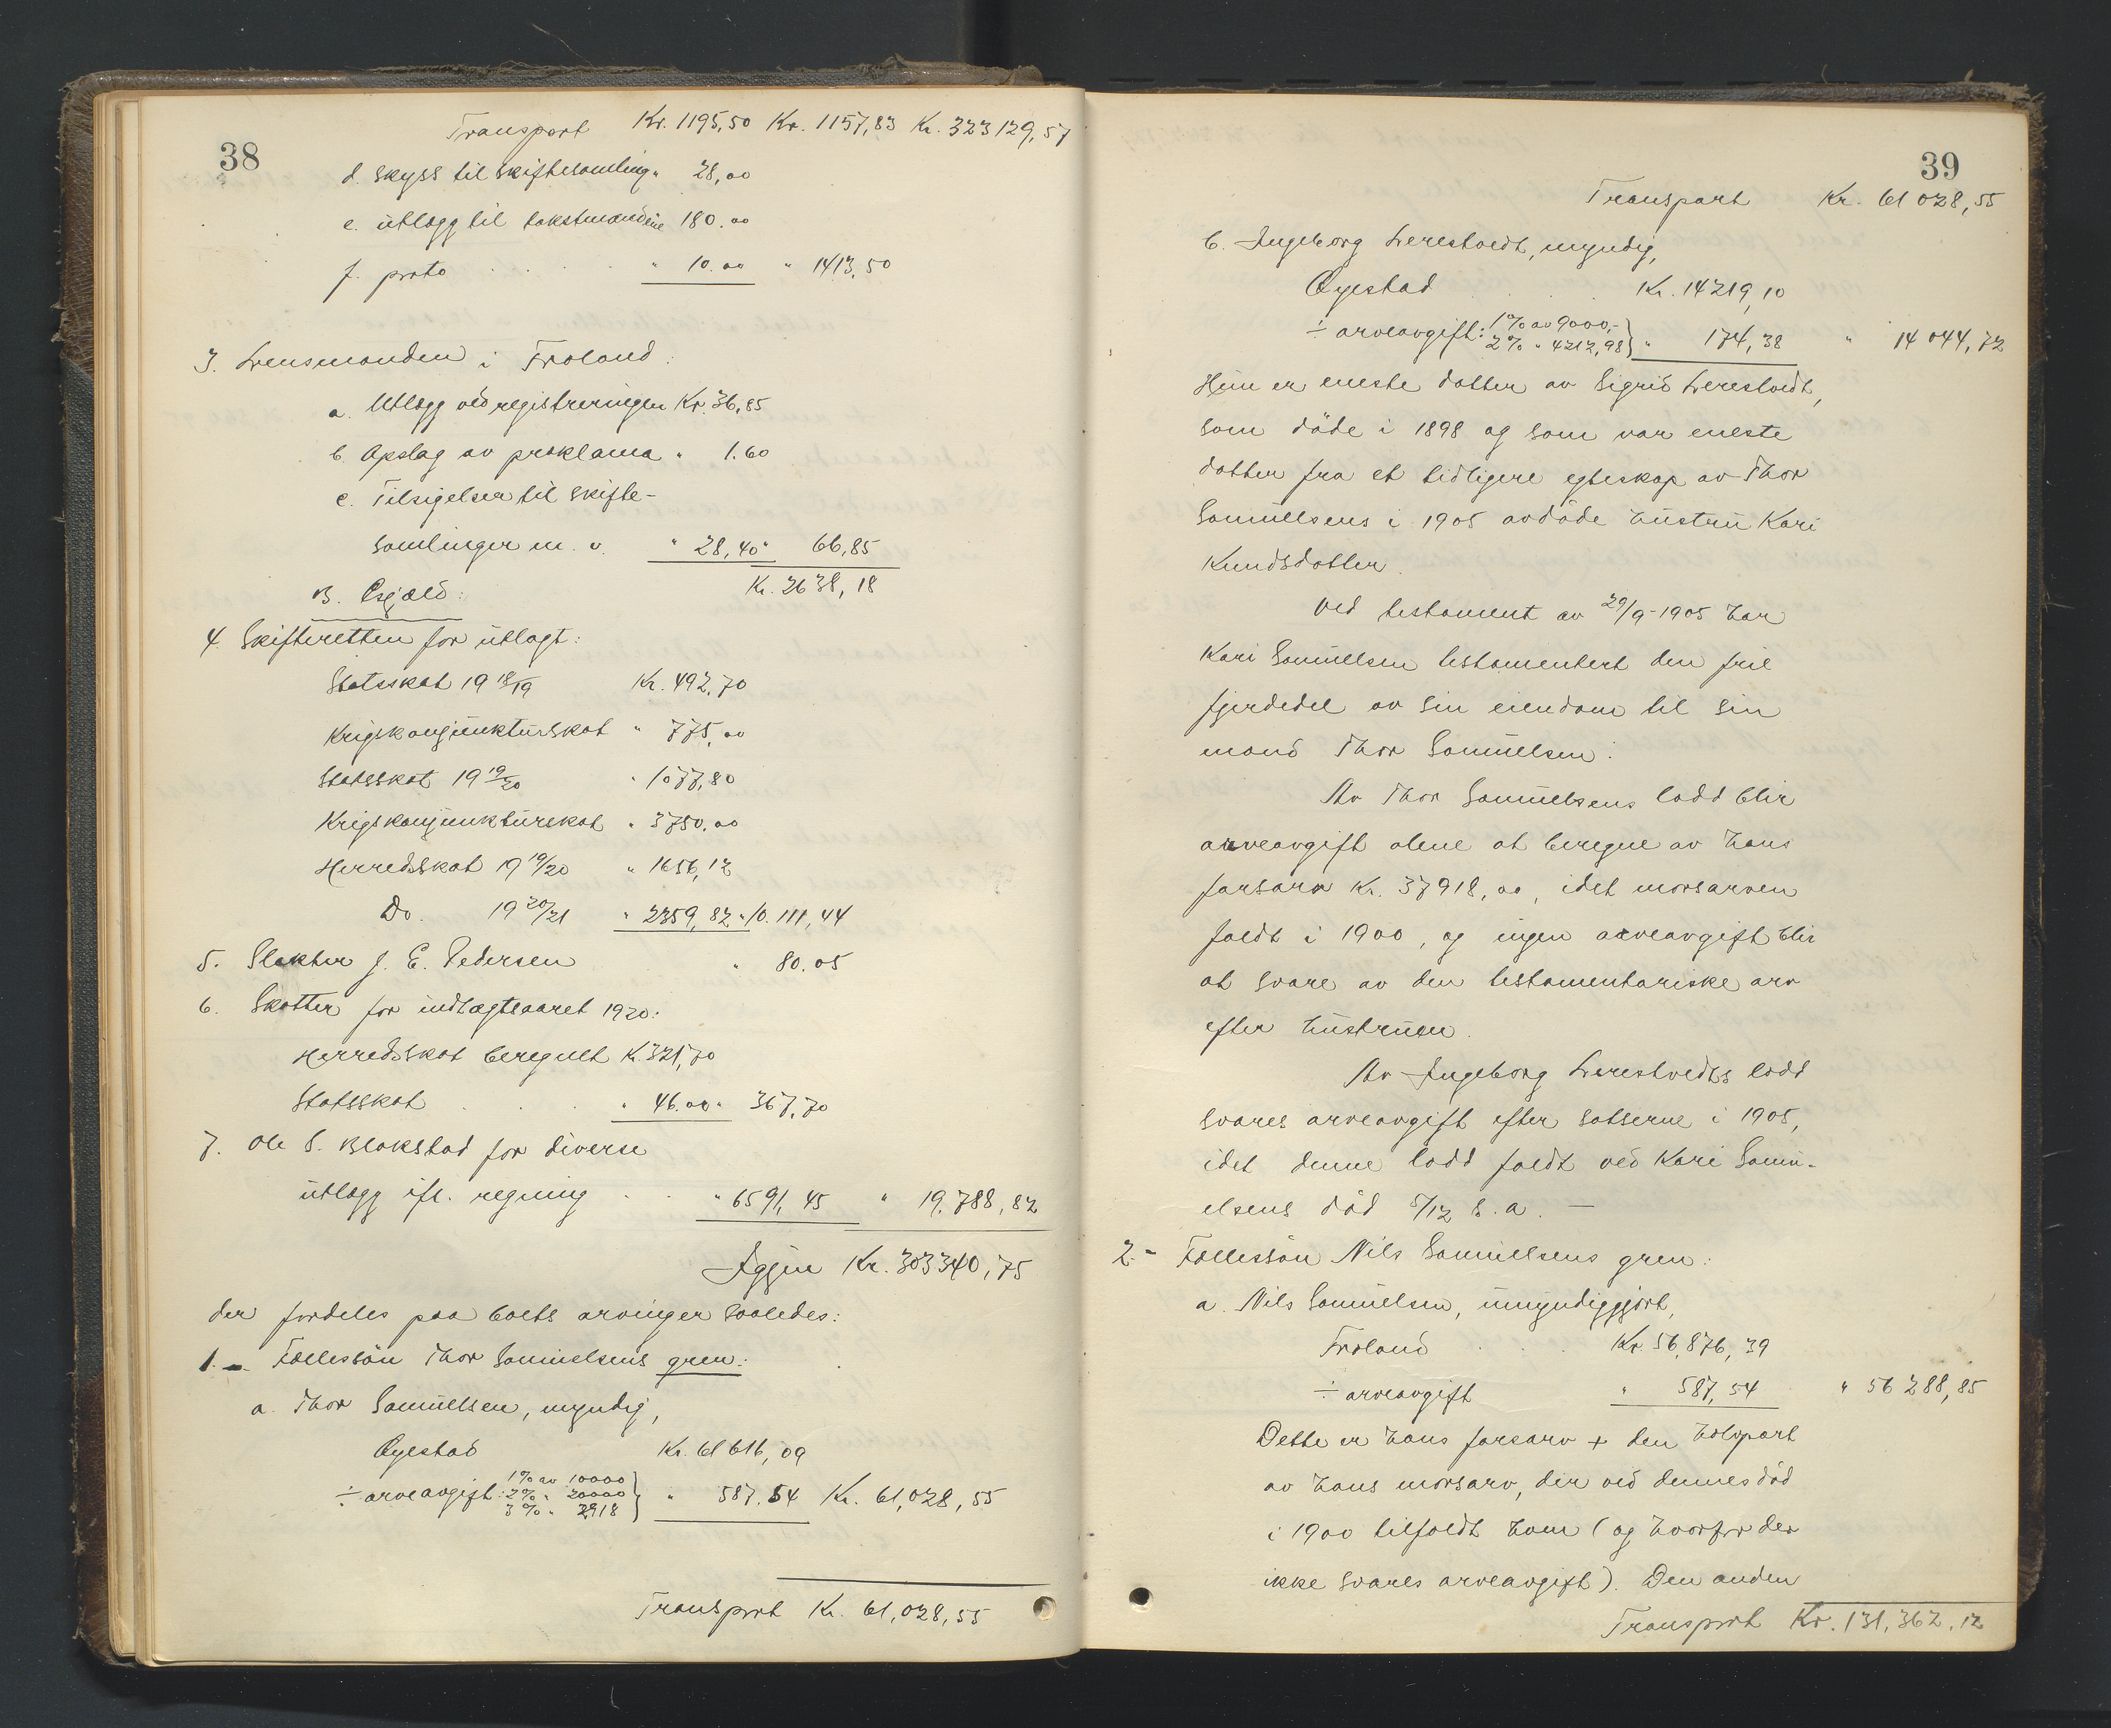 38
Transport Kr. 1195,50 Kr. 1157,83 Kr. 323129,57
d. skyss til skiftesamling " 28,00
e. utlægg til takstmændene 180.00
f. porto . . . . . " 10.00 " 1413,50
3. Lensmanden i Froland:
a. Utlægg ved registreringen Kr. 36,85
b. Opslag av proklama " 1.60
c. Tilsigelser til skifte-
samlinger m. v. " 28,40 " 66,85
Kr. 2638,18
B. Gjæld:
4. Skifteretten for utlagt:
Statsskat 19 18/19 Kr. 492,70
Krigskonjunkturskat " 775,00
Statsskat 19 19/20 " 1077,80
Krigskonjunkturskat " 3750,00
Herredsskat 19 19/20 " 1656,12
Do. 19 20/21 " 2359,82 " 10.111,44
5. Slakter J. E. Pedersen " 80.05
6. Skatter for indtægtsaaret 1920:
Herredsskat beregnet K. 321,70
Statsskat . . . " 46.00 " 367,70
7. Ole S. Blakstad for diverse
utlægg ifl. regning . . " 6591,45 " 19.788,82
Igjen Kr. 303340,75
der fordeles paa boets arvinger saaledes:
1.- Fællessøn Thor Samuelsens gren:
a. Thor Samuelsen, myndig,
Øyestad Kr. 61616,09
÷ arveavgift: 1% av 10000
2% " 20000
3% " 7918 } " 587.54 Kr. 61,028,55
Transport Kr. 61,028,55
39
Transport Kr. 61028,55
b. Ingeborg Lerestvedt, myndig,
Øyestad . . Kr. 14219,10
÷ arveavgift: 1% av 9000,-
2% " 4212,98 } " 174,38 " 14044,72
Hun er eneste datter av Sigrid Lerestvedt,
som døde i 1898 og som var eneste
datter fra et tidligere egteskap av Thor
Samuelsens i 1905 avdøde hustru Kari
Knudsdatter.
Ved testament av 29/9-1905 har
Kari Samuelsen testamentert den frie
fjerdedel av sin eiendom til sin
mand Thor Samuelsen.
Av Thor Samuelsens lodd blir
arveavgift alene at beregne av hans
farsarv Kr. 37918,00, idet morsarven
faldt i 1900, og ingen arveavgift blir
at svare av den testamentariske arv
efter hustruen.
Av Ingeborg Lerestvedts lodd
svares arveavgift efter satserne i 1905,
idet denne lodd faldt ved Kari Samu-
elsens død 5/12 s. a. —
2.- Fællessøn Nils Samuelsens gren:
a. Nils Samuelsen, umyndiggjort,
Froland . . . Kr. 56,876,39
÷ arveavgift " 587,54 " 56288,85
Dette er hans farsarv + den halvpart
av hans morsarv, der ved dennes død
i 1900 tilfaldt ham (og hvorfor der
ikke svares arveavgift). Den anden
Transport Kr. 131,362,12